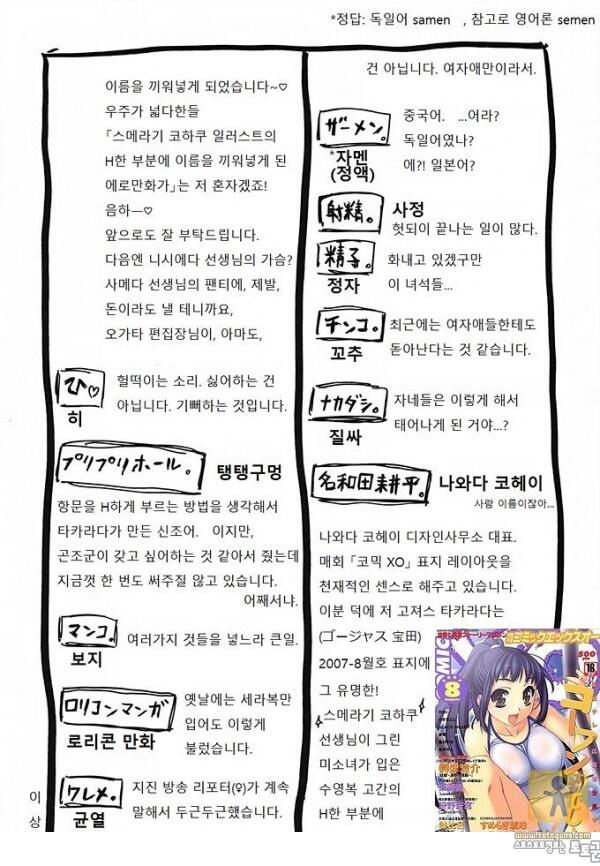 *정답: 독일어 samen , 참고로 영어론 semen
건 아닙니다. 여자애만이라서.
ザーメン。
*자멘
(정액)
중국어. ...어라?
독일어였나?
에?! 일본어?
射精。
사정
헛되이 끝나는 일이 많다.
精子。
정자
화내고 있겠구만
이 녀석들...
チンコ。
꼬추
최근에는 여자애들한테도
돋아난다는 것 같습니다.
ナカダシ。
질싸
자네들은 이렇게 해서
태어나게 된 거야...?
名和田耕平。
나와다 코헤이
사람 이름이잖아...
나와다 코헤이 디자인사무소 대표.
매회 「코믹 XO」 표지 레이아웃을
천재적인 센스로 해주고 있습니다.
이분 덕에 저 고져스 타카라다는
(ゴージャス 宝田)
2007-8월호 표지에
그 유명한!
스메라기 코하쿠
선생님이 그린
미소녀가 입은
수영복 고간의
H한 부분에
이름을 끼워넣게 되었습니다~♡
우주가 넓다한들
「스메라기 코하쿠 일러스트의
H한 부분에 이름을 끼워넣게 된
에로만화가」는 저 혼자겠죠!
음하—♡
앞으로도 잘 부탁드립니다.
다음엔 니시에다 선생님의 가슴?
사메다 선생님의 팬티에, 제발,
돈이라도 낼 테니까요,
오가타 편집장님이, 아마도,
ひ♡
히
헐떡이는 소리. 싫어하는 건
아닙니다. 기뻐하는 것입니다.
プリプリホール。
탱탱구멍
항문을 H하게 부르는 방법을 생각해서
타카라다가 만든 신조어. 이지만,
곤조군이 갖고 싶어하는 것 같아서 줬는데
지금껏 한 번도 써주질 않고 있습니다.
어째서냐.
マンコ。
보지
여러가지 것들을 넣느라 큰일.
ロリコンマンガ
로리콘 만화
옛날에는 세라복만
입어도 이렇게
불렀습니다.
ワレメ。
균열
지진 방송 리포터(♀)가 계속
말해서 두근두근했습니다.
이
상
COMIC
8
500
18
すめらぎ琥珀
www.totoguns.com